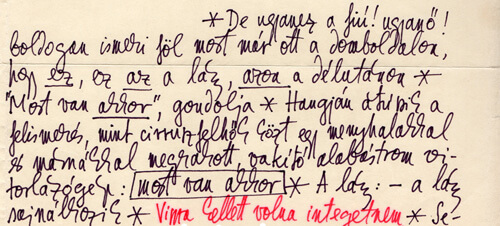 * De ugyanez a fiú! ugyanő!
boldogan ismeri föl most már ott a domboldalon,
hogy ez, ez az a láz, azon a délutánon *
"Most van akkor", gondolja * Hangján átüt a
felismerés, mint cirruszfelhők közt egy menyhalakkal
és márnákkal megrakott, vakító alabástrom vi-
torlázógép: most van akkor * A láz: – a láz
sajnálkozik * Vissza kellett volna integetnem * Se-